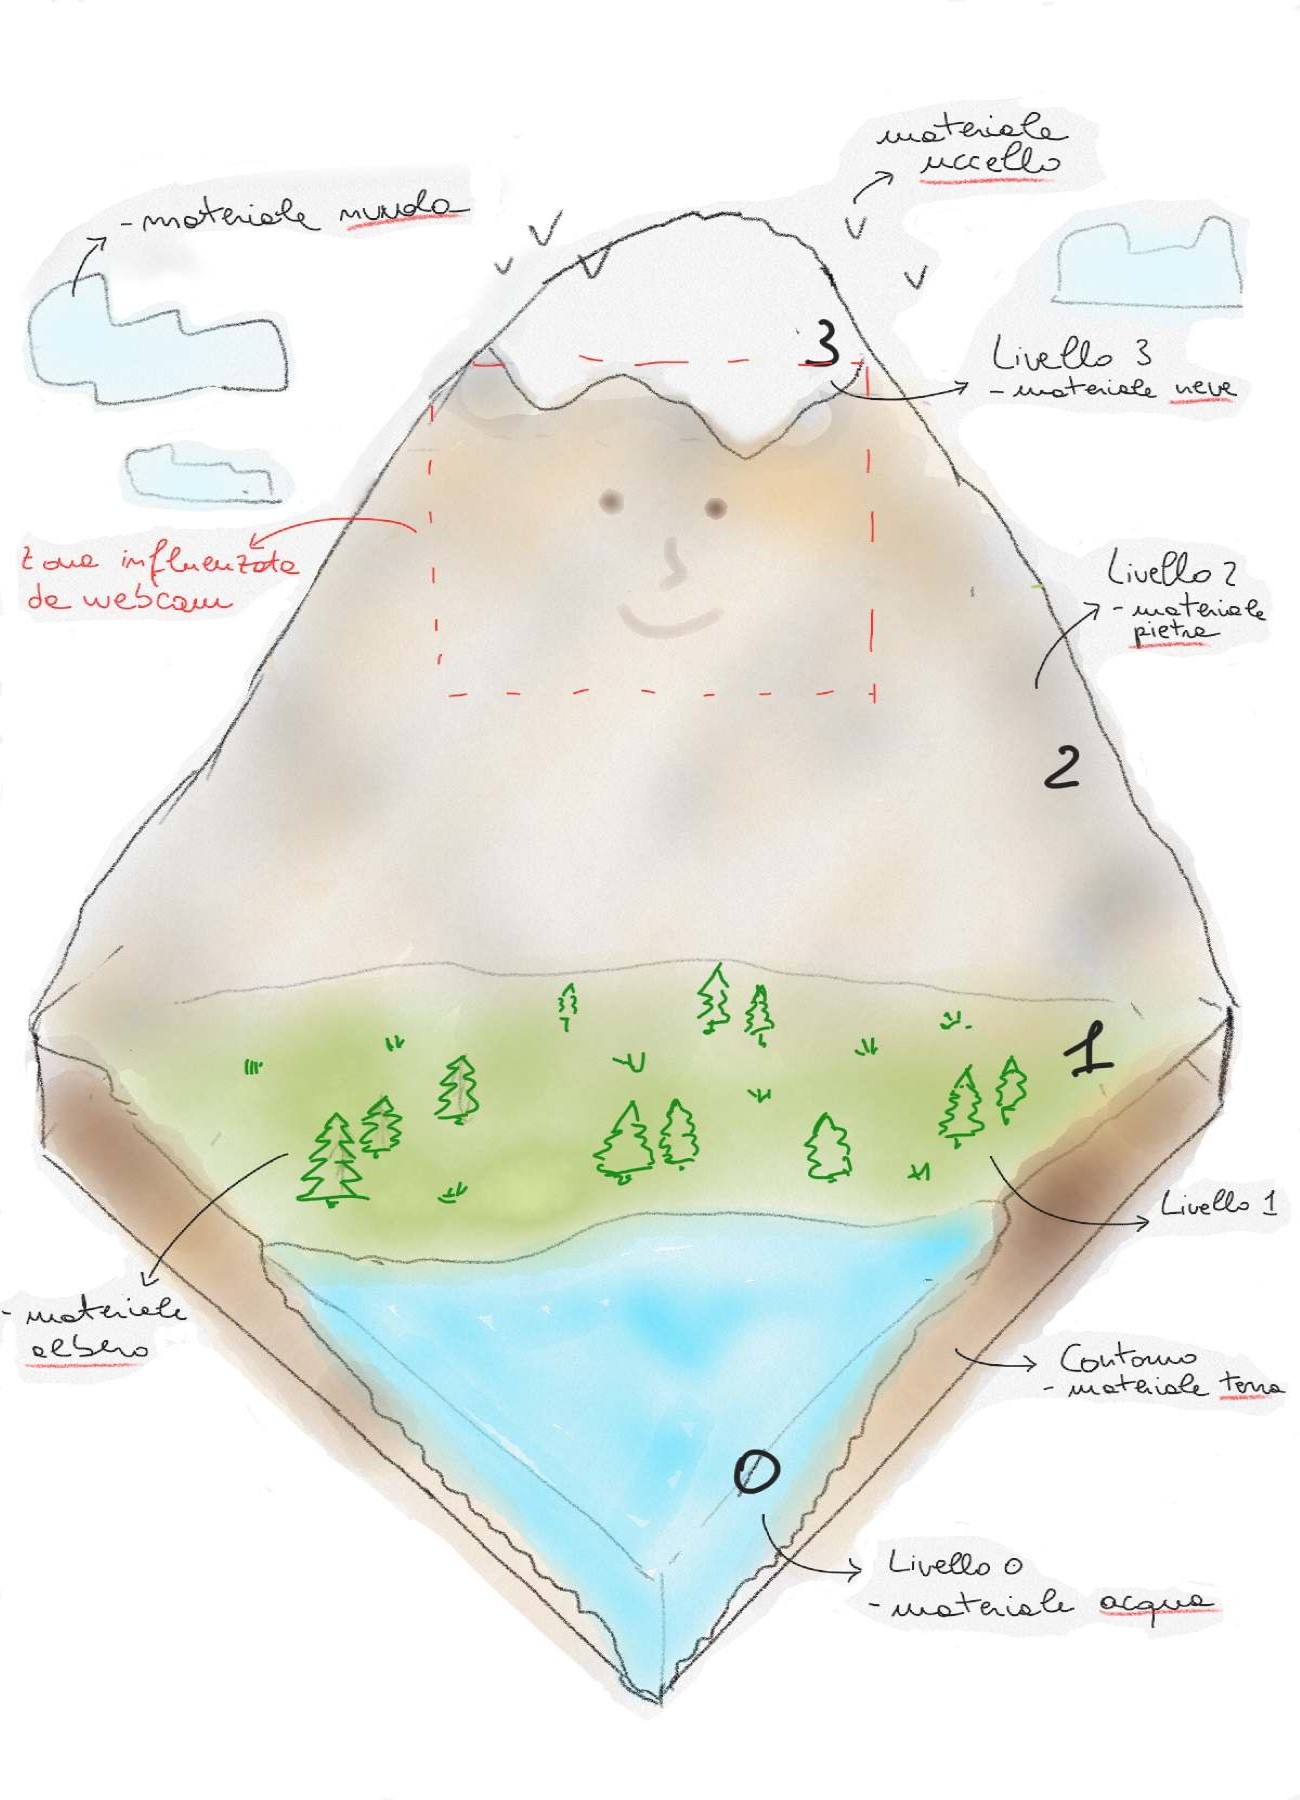 materiale
uccello
- materiale nuvola
3
Livello 3
- materiale neve
zona influenzata
da webcam
Livello 2
- materiale
pietra
2
1
Livello 1
- materiale
albero
Contorno
- materiale terra
0
Livello 0
- materiale acqua